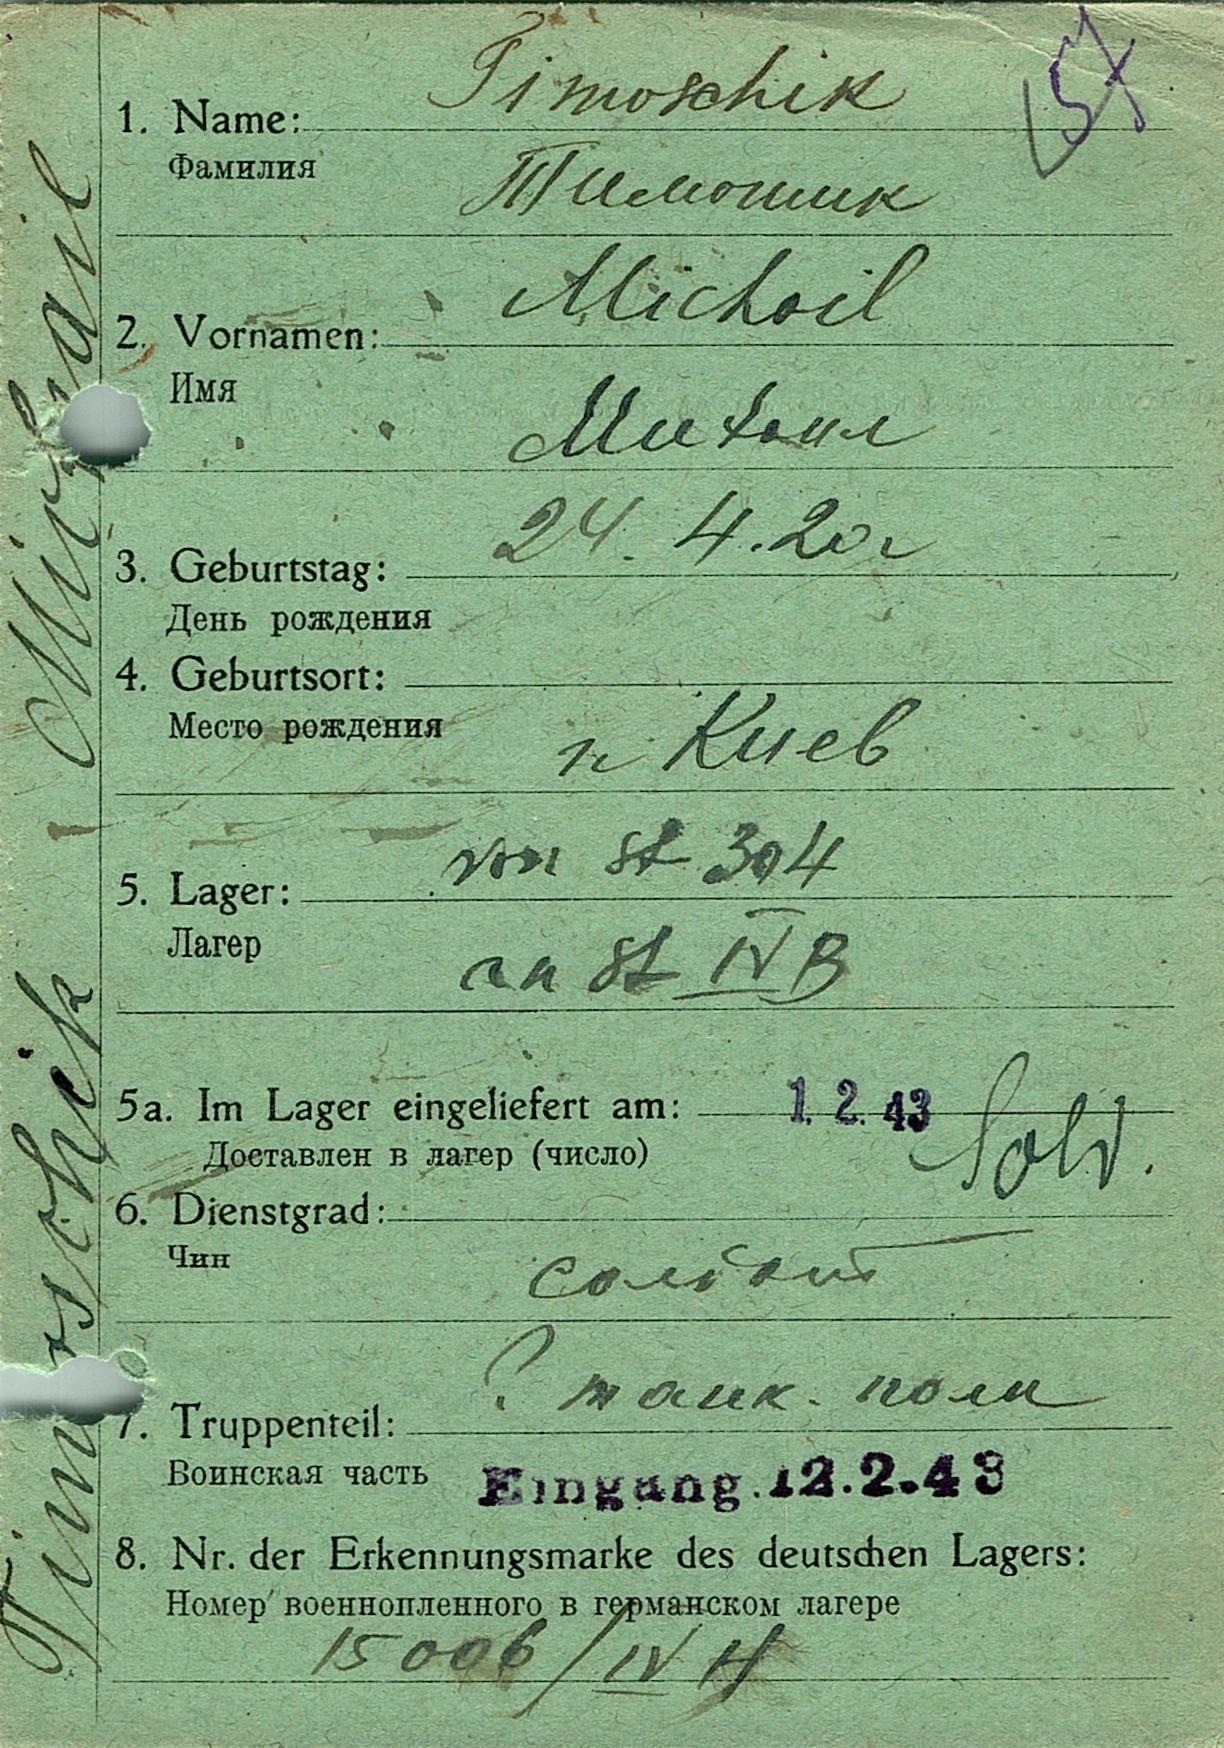 57
Timoschik
1. Name:
Фамилия
Тимошик
Michail
2. Vornamen:
Имя
Михаил
24. 4. 20 г
3. Geburtstag:
День рождения
4. Geburtsort:
Место рождения
Киев
von St 304
5. Lager:
Лагер
an St IV B
5a. Im Lager eingeliefert am: 1. 2. 43
Доставлен в лагер (число)
Sold.
6. Dienstgrad:
Чин
солдат
? танк. полк
7. Truppenteil:
Воинская часть
Eingang 12.2.43
8. Nr. der Erkennungsmarke des deutschen Lagers:
Номер военнопленного в германском лагере
15006/IV H
Timoschik Michail